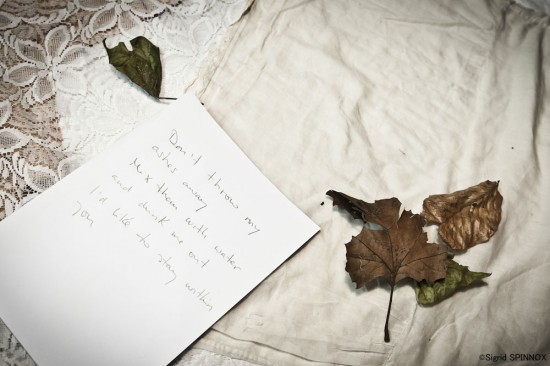 Don't throw my
ashes away
Mix them with water
and drink me out
I'd like to stay within
you
©Sigrid SPINNOX